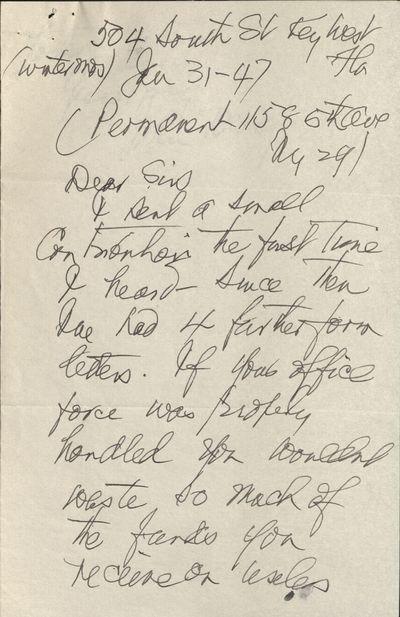 504 South St Key West
(winter mos) Jan 31-47 Fla
(Permanent 1158 5th Ave
Ny 29)
Dear Sirs
I sent a small
Contribution the first Time
I heard - Since then
I've had 4 further form
letters. If your office
force was properly
handled you wouldnt
waste so much of
the funds you
recieve on useless